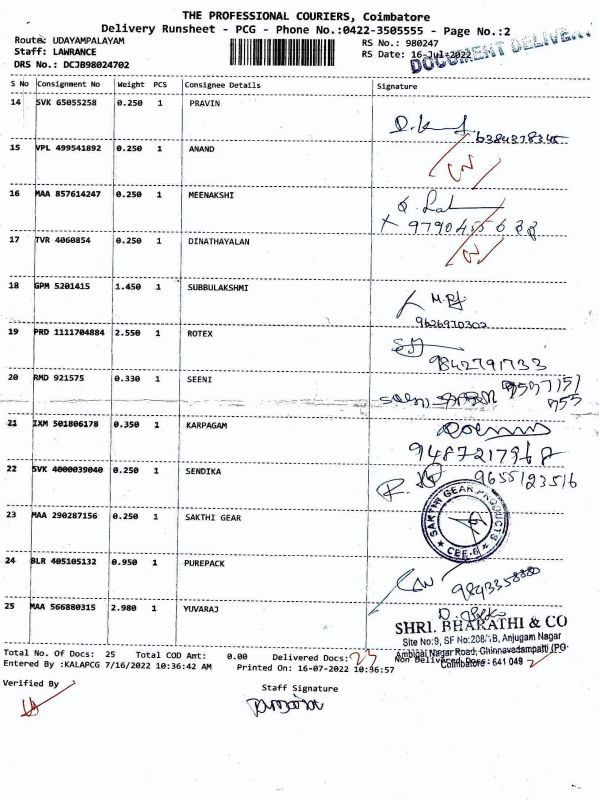 THE PROFESSIONAL COURIERS, Coimbatore
Delivery Runsheet - PCG - Phone No.:0422-3505555 - Page No.:2
Route: UDAYAMPALAYAM
RS No.: 980247
Staff: LAWRANCE
RS Date: 16-Jul-2022
DOCUMENT DELIVERY
DRS No.: DCJB98024702
S No Consignment No Weight PCS Consignee Details Signature
14 SVK 65055258 0.250 1 PRAVIN
6384378345
15 VPL 499541892 0.250 1 ANAND
16 MAA 857614247 0.250 1 MEENAKSHI
17 TVR 4060854 0.250 1 DINATHAYALAN
18 GPM 5201415 1.450 1 SUBBULAKSHMI
9626970302
19 PRD 1111704884 2.550 1 ROTEX
9842791733
20 RMD 921575 0.330 1 SEENI
21 IXM 501806178 0.350 1 KARPAGAM
22 SVK 4000039040 0.250 1 SENDIKA
9655123516
23 MAA 290287156 0.250 1 SAKTHI GEAR
SAKTHI GEAR PRODUCTS
CBE-6
24 BLR 405105132 0.950 1 PUREPACK
25 MAA 566880315 2.980 1 YUVARAJ
SHRI. BHARATHI & CO
Site No:9, SF No:208/1B, Anjugam Nagar
Ambigai Nagar Road, Chinnavedampatti (PO.
Coimbatore: 641 049
Total No. Of Docs: 25 Total COD Amt: 0.00 Delivered Docs: 23 Non Delivered Docs: 2
Entered By :KALAPCG 7/16/2022 10:36:42 AM Printed On: 16-07-2022 10:36:57
Verified By
Staff Signature